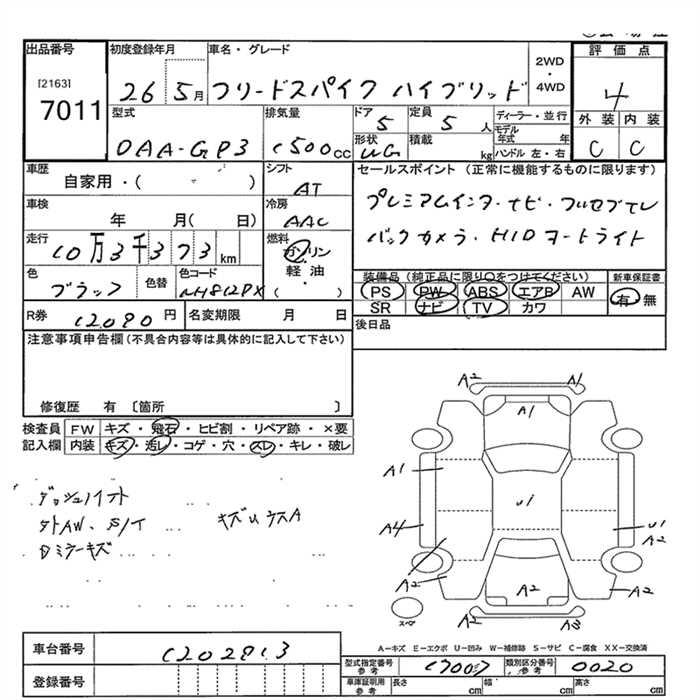 出品番号 初度登録年月 車名・グレード 2WD・4WD 評価点
[2163] 7011 26 5月 フリードスパイク ハイブリッド 4
型式 排気量 ドア 定員 ディーラー・並行 外装 内装
DAA-GP3 1500cc 5 5人 モデル年式 年 C C
形状 積載 kg ハンドル 左・右
UG
車歴 シフト セールスポイント (正常に機能するものに限ります)
自家用・( ) AT プレミアムインターナビ・フルセグTV
車検 冷房 バックカメラ・HIDヘッドライト
年 月( 日) AAC
走行 燃料
10万3千373km ガソリン
軽油
・
( )
色 色替 色コード 装備品 (純正品に限り○をつけてください) 新車保証書
ブラック NH812PX PS PW ABS エアB AW 有 無
SR ナビ TV カワ
R券 12090円 名変期限 月 日 後日品
注意事項申告欄(不具合内容等は具体的に記入して下さい)
修復歴 有 〔箇所 〕
検査員 FW キズ・飛石・ヒビ割・リペア跡・×要
記入欄 内装 キズ・汚レ・コゲ・穴・スレ・キレ・破レ
A2 A1
A1
A1
U1
A4 U1
A2
A2 A2 A2
スペア A2 A3
キズ
A-キズ E-エクボ U-凹み W-補修跡 S-サビ C-腐食 XX-交換済
車台番号 1202813
登録番号
型式指定番号 参考 17007 類別区分番号 参考 0020
車庫証明用 参考 長さ cm 幅 cm 高さ cm